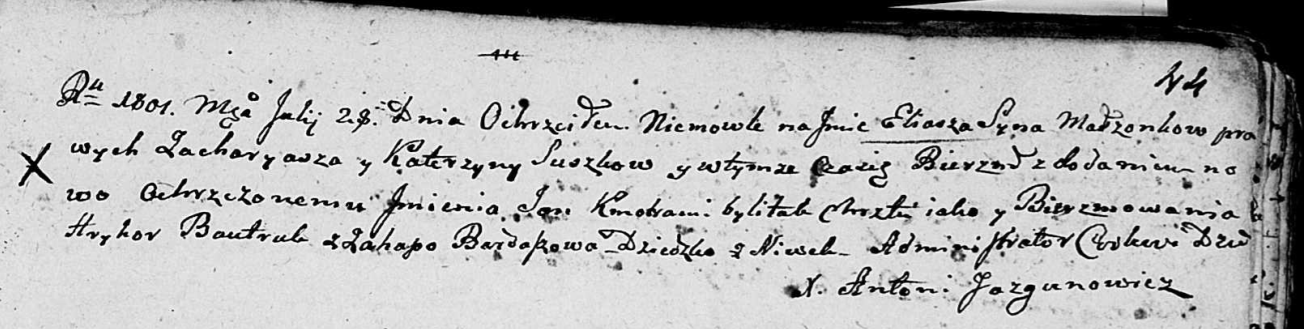 44
Rku 1801. Mca Julij 28. Dnia Ochrzciłem Niemowle na Jmie Eliasza Syna Małzonkow pra
wych Zacharyasza y Katerzyny Suszkow y wtymze czasie Bierzm z dodaniem no
wo ochrzczonemu Jmienia Jan Kmotrami byli tak chrztu iako y Bierzmowania
Hryhor Bautruk z Dziedzko z Niwek - Administrator Cerkwi
X. Antoni Jazgunowicz